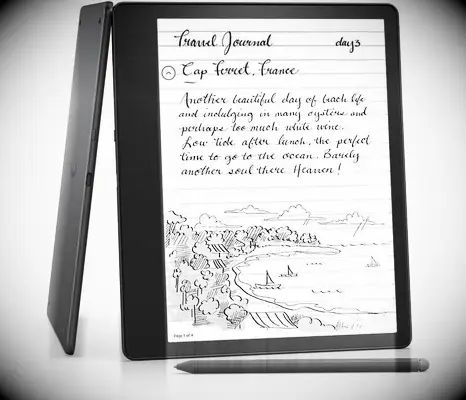 Travel Journal day3
Cap Ferret, France
Another beautiful day of beach life
and indulging in many oysters and
perhaps too much white wine.
Low tide after lunch, the perfect
time to go to the ocean. Barely
another soul there. Heaven!
Page 1 of 4